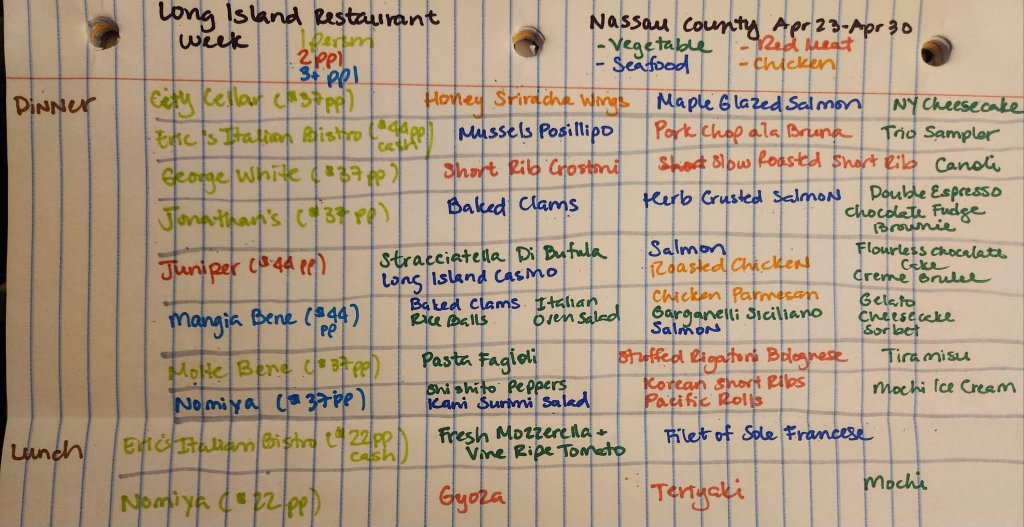 Long Island Restaurant Week
1 person
2 ppl
3+ ppl
Nassau County Apr 23-Apr 30
- Vegetable - Red Meat
- Seafood - Chicken
Dinner
City Cellar ($37pp) Honey Sriracha Wings Maple Glazed Salmon NY Cheesecake
Eric's Italian Bistro ($44pp cash) Mussels Posillipo Pork Chop ala Bruna Trio Sampler
George White ($37pp) Short Rib Crostoni Short Slow Roasted Short Rib Canoli
Jonathan's ($37pp) Baked Clams Herb Crusted Salmon Double Espresso
Chocolate Fudge
Brownie
Juniper ($44pp) Stracciatella Di Bufula Salmon Flourless Chocolate
Long Island Casino Roasted Chicken Cake
Creme Brulee
Mangia Bene ($44 pp) Baked Clams Italian Chicken Parmesan Gelato
Rice Balls Oven Salad Garganelli Siciliano Cheesecake
Salmon Sorbet
Molte Bene ($37pp) Pasta Fagioli Stuffed Rigatoni Bolognese Tiramisu
Nomiya ($37pp) Shishito Peppers Korean Short Ribs Mochi Ice Cream
Kani Surimi Salad Pacific Rolls
Lunch
Eric's Italian Bistro ($22pp cash) Fresh Mozzerella + Filet of Sole Francese
Vine Ripe Tomato
Nomiya ($22pp) Gyoza Teriyaki Mochi